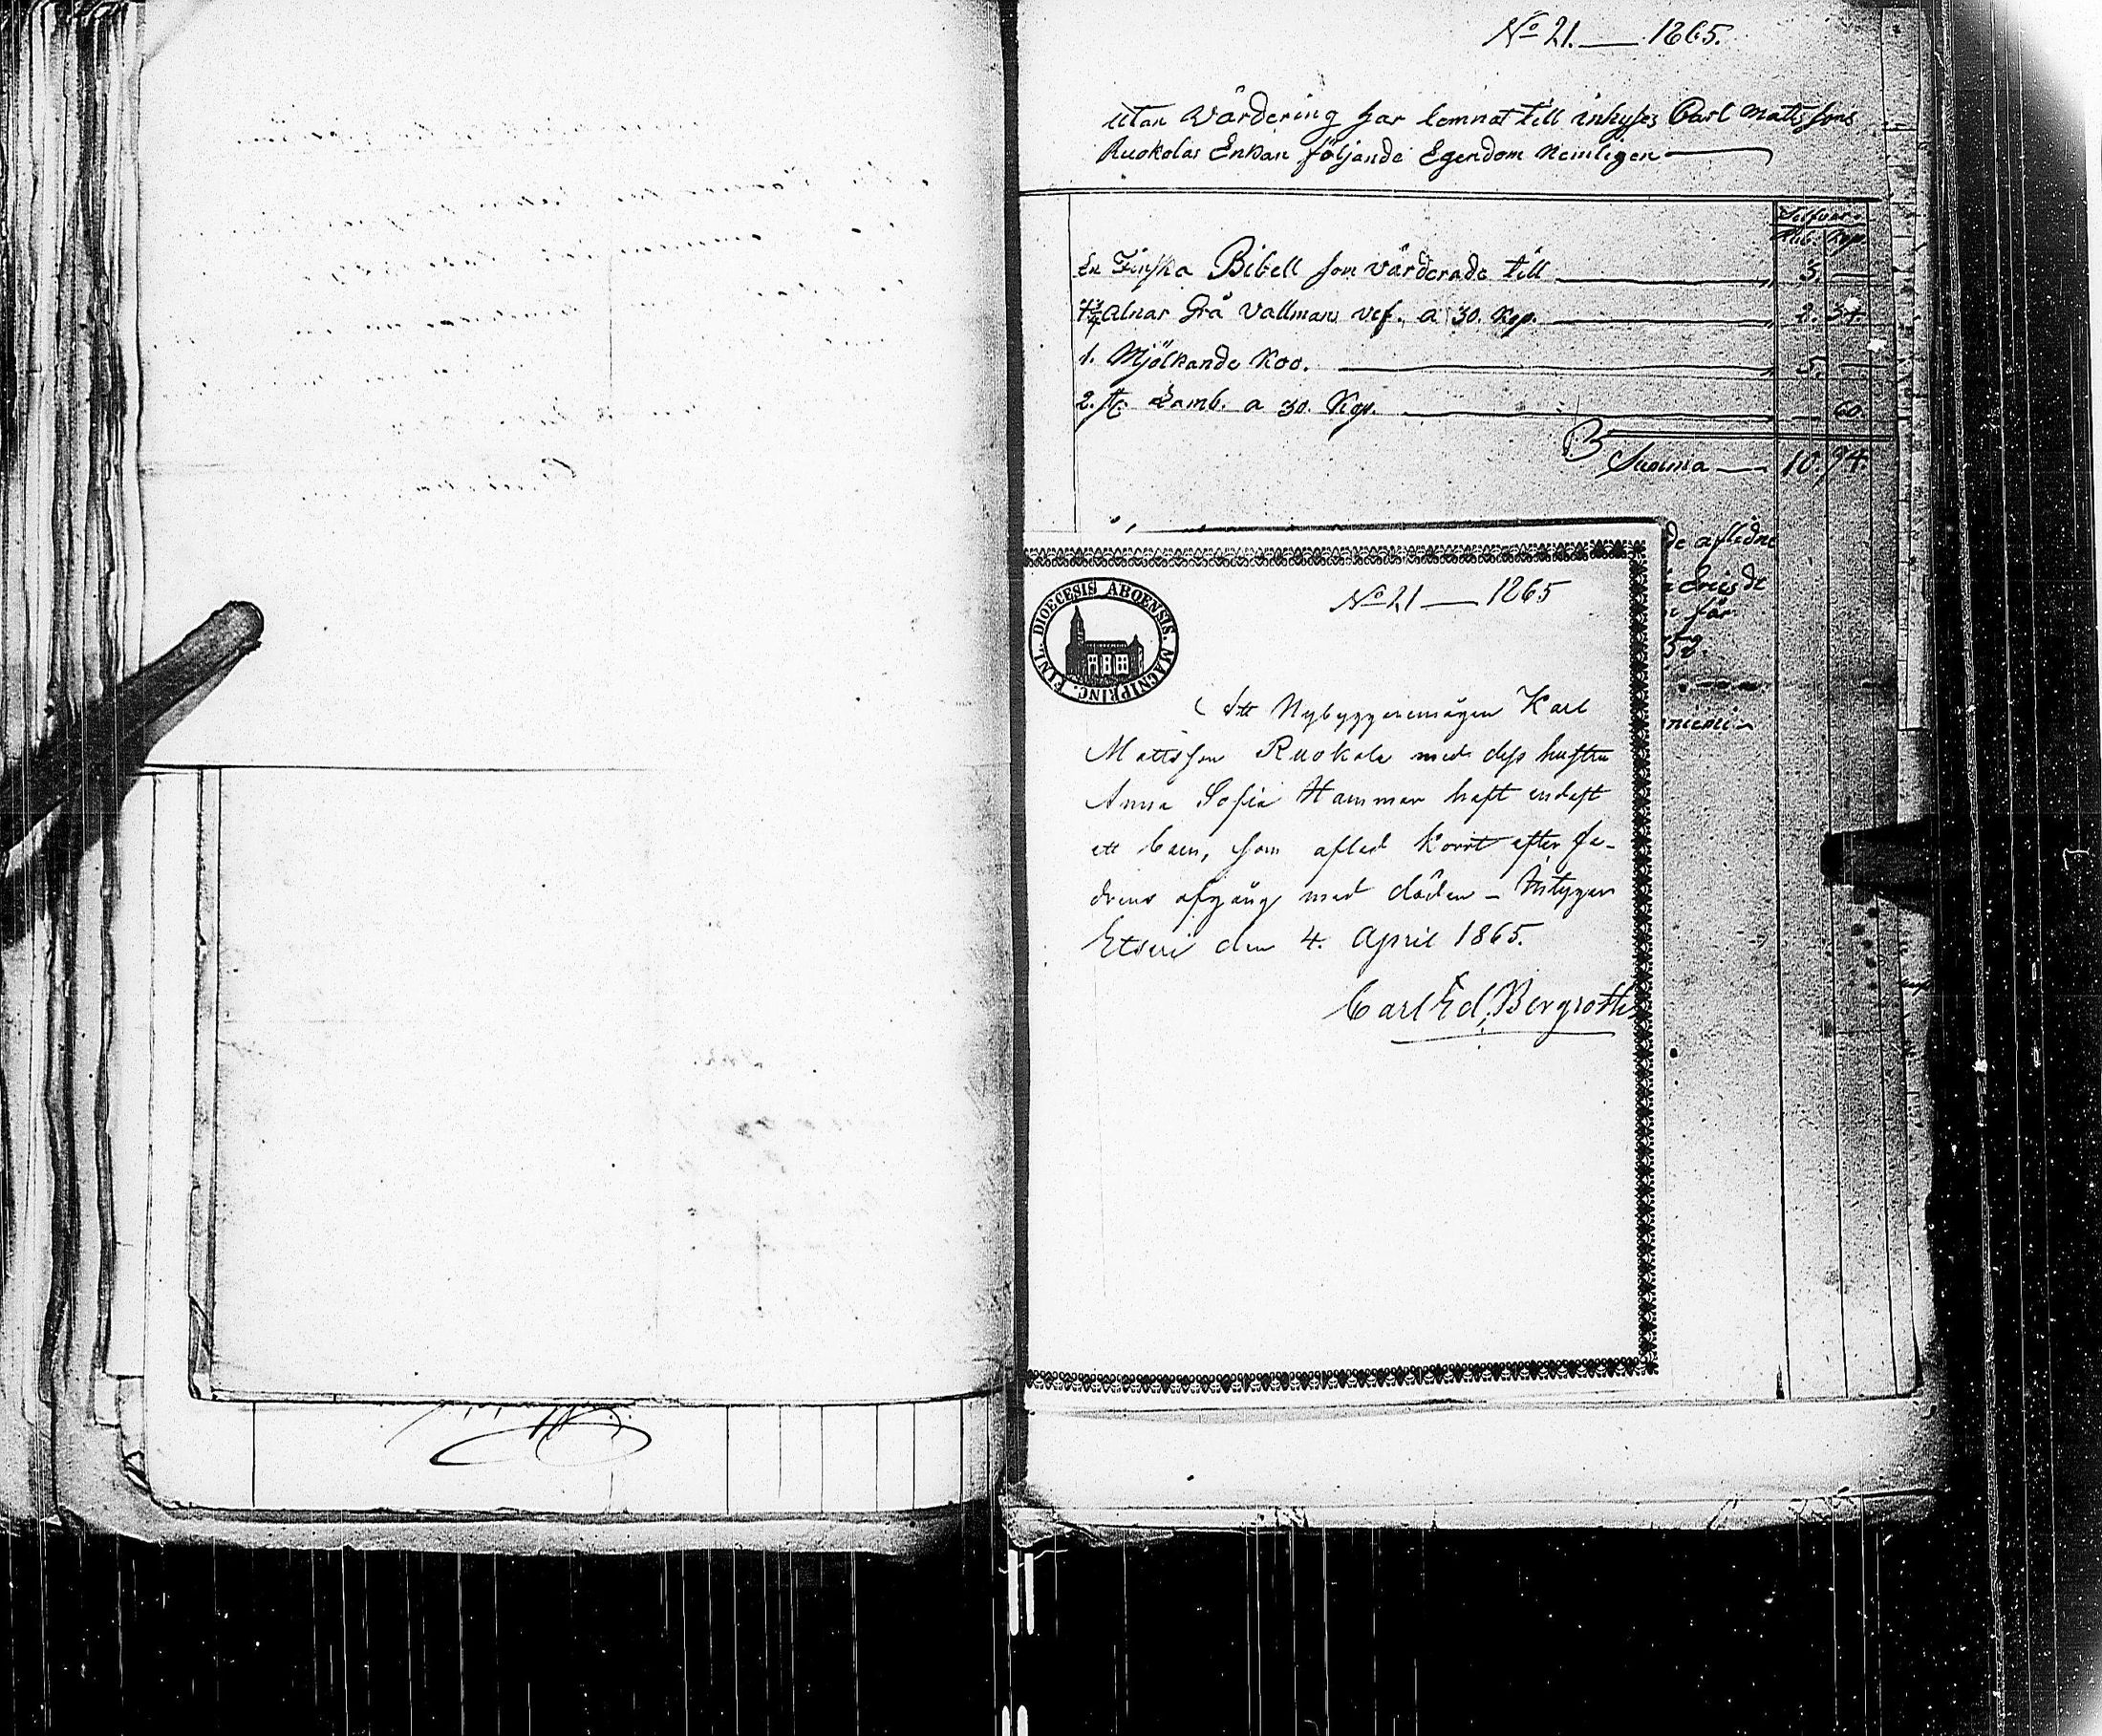 No 21. — 1865.
utan Värdering har lemnat till inhyses Carl Mattssons
Ruokolas Enkan följande Egendom Nemligen
Silfver.
Rub. Kop.
En Finska Bibell som värderade till 3. —
7 3/4 Alnar Grå Vallmans vef. a 30. Kop. 2. 34.
1. Mjölkande Koo. 5. —
2. st. Lamb. a 30. Kop. — 60.
Summa — 10. 94.
de aflidne
för
59.
DIOECESIS ABOENSIS. MAGNI PRINC. FINL.
No 21 — 1865
Att Nybyggaremågen Karl
Mattsson Ruokola med dess hustru
Anna Sofia Hammar haft endast
ett barn, som afled kort efter fa-
drens afgång med döden – Intygar
Etseri den 4. April 1865.
Carl Ed. Bergroth